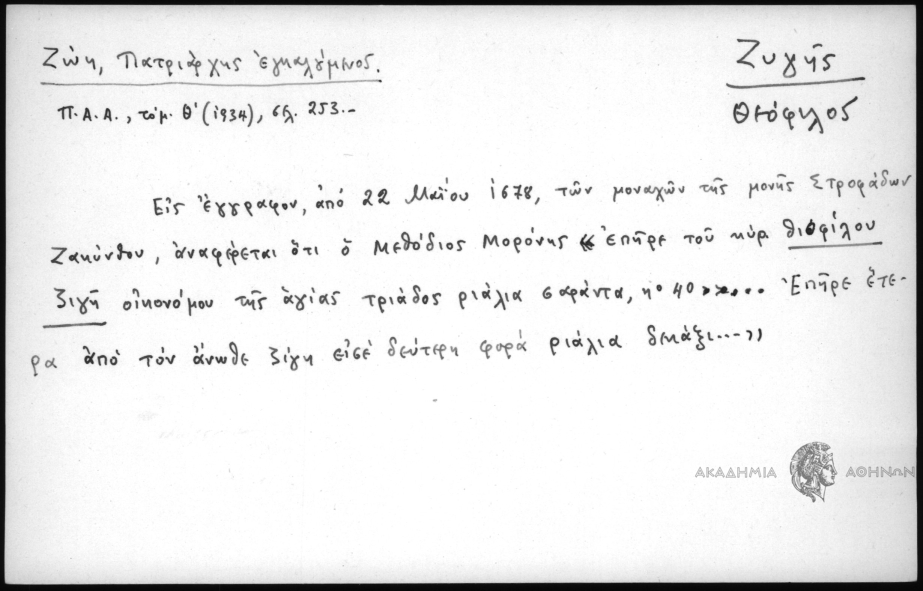 Ζώη, Πατριάρχης ἐγκαλούμενος.
Ζυγῆς
Π.Α.Α., τόμ. Θ' (1934), σελ. 253.-
Θεόφιλος
Εἰς ἔγγραφον, ἀπό 22 Μαΐου 1678, τῶν μοναχῶν τῆς μονῆς Στροφάδων
Ζακύνθου, ἀναφέρεται ὅτι ὁ Μεθόδιος Μορόνης « ἐπῆρε τοῦ κύρ θιοφίλου
ζιγῆ οἰκονόμου τῆς ἁγίας τριάδος ριάλια σαράντα, νο 40».... Ἐπῆρε ἕτε-
ρα ἀπό τόν ἄνωθε ζίγη εἰσέ δεύτερη φορά ριάλια δεκάξι...»
ΑΚΑΔΗΜΙΑ ΑΘΗΝΩΝ